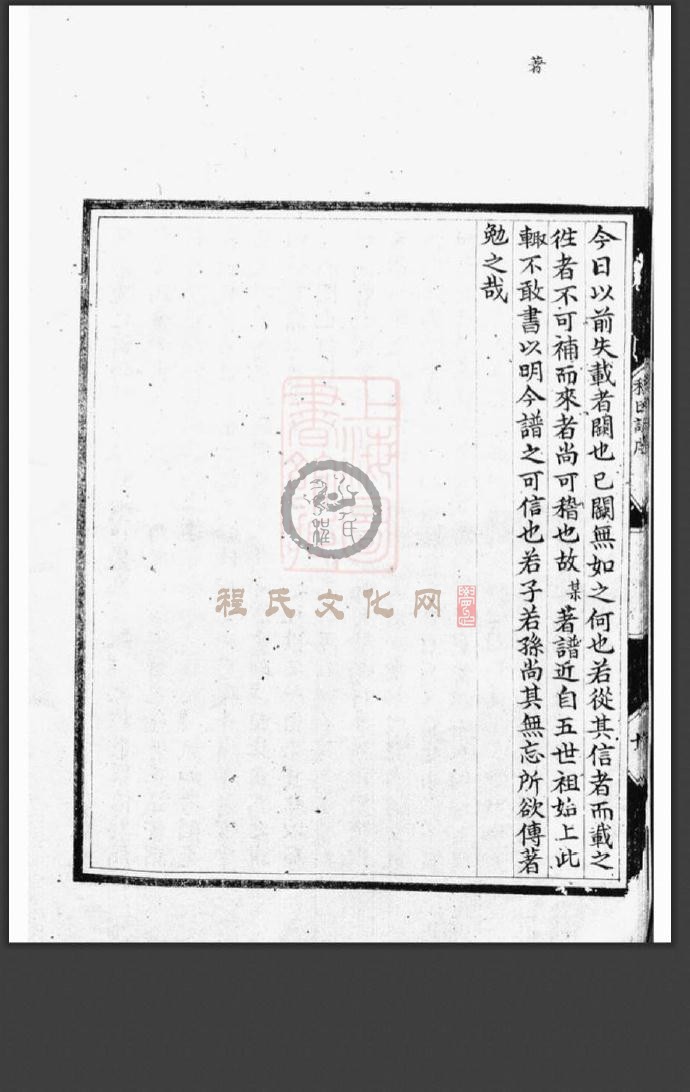 著
今日以前失載者闕也已闕無如之何也若從其信者而載之
徃者不可補而來者尚可稽也故某著譜近自五世祖始上此
輙不敢書以明今譜之可信也若子若孫尚其無忘所欲傳著
勉之哉
程氏文化网
上海圖書館藏